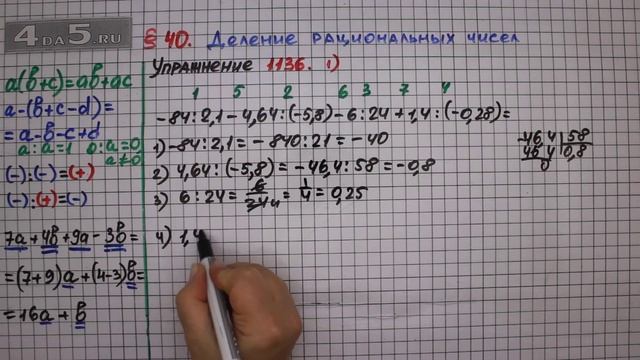 4DA5.RU
§ 40. Деление рациональных чисел
Упражнение 1136. 1)
a(b+c)=ab+ac
a-(b+c-d)=
=a-b-c+d
a:a=1 0:a=0
a≠0
(-):(-)=(+)
(-):(+)=(-)
7a+4b+9a-3b=
=(7+9)a+(4-3)b=
=16a+b
1 5 2 6 3 7 4
-84:2,1-4,64:(-5,8)-6:24+1,4:(-0,28)=
1) -84:2,1=-840:21=-40
2) 4,64:(-5,8)=-46,4:58=-0,8
3) 6:24=6/24 4=1/4=0,25
4) 1,4
-46,4 58
46 4 0,8
0